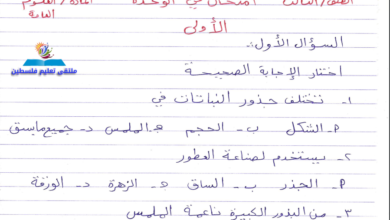 الصف/الثالث امتحان في الوحدة المادة/العلوم
الأولى العامة
ملتقى تعليم فلسطين
السؤال الأول:
اختار الإجابة الصحيحة
١- تختلف جذور النباتات في
P- الشكل ب- الحجم هـ- الملمس د- جميع ماسبق
٢- يستخدم لصناعة العطور
P- الجذر ب- الساق هـ- الزهرة د- الورقة
٣- من البذور الكبيرة ناعمة الملمس